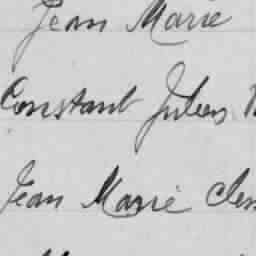 Jean Marie
Constant Jules
Jean Marie Clem